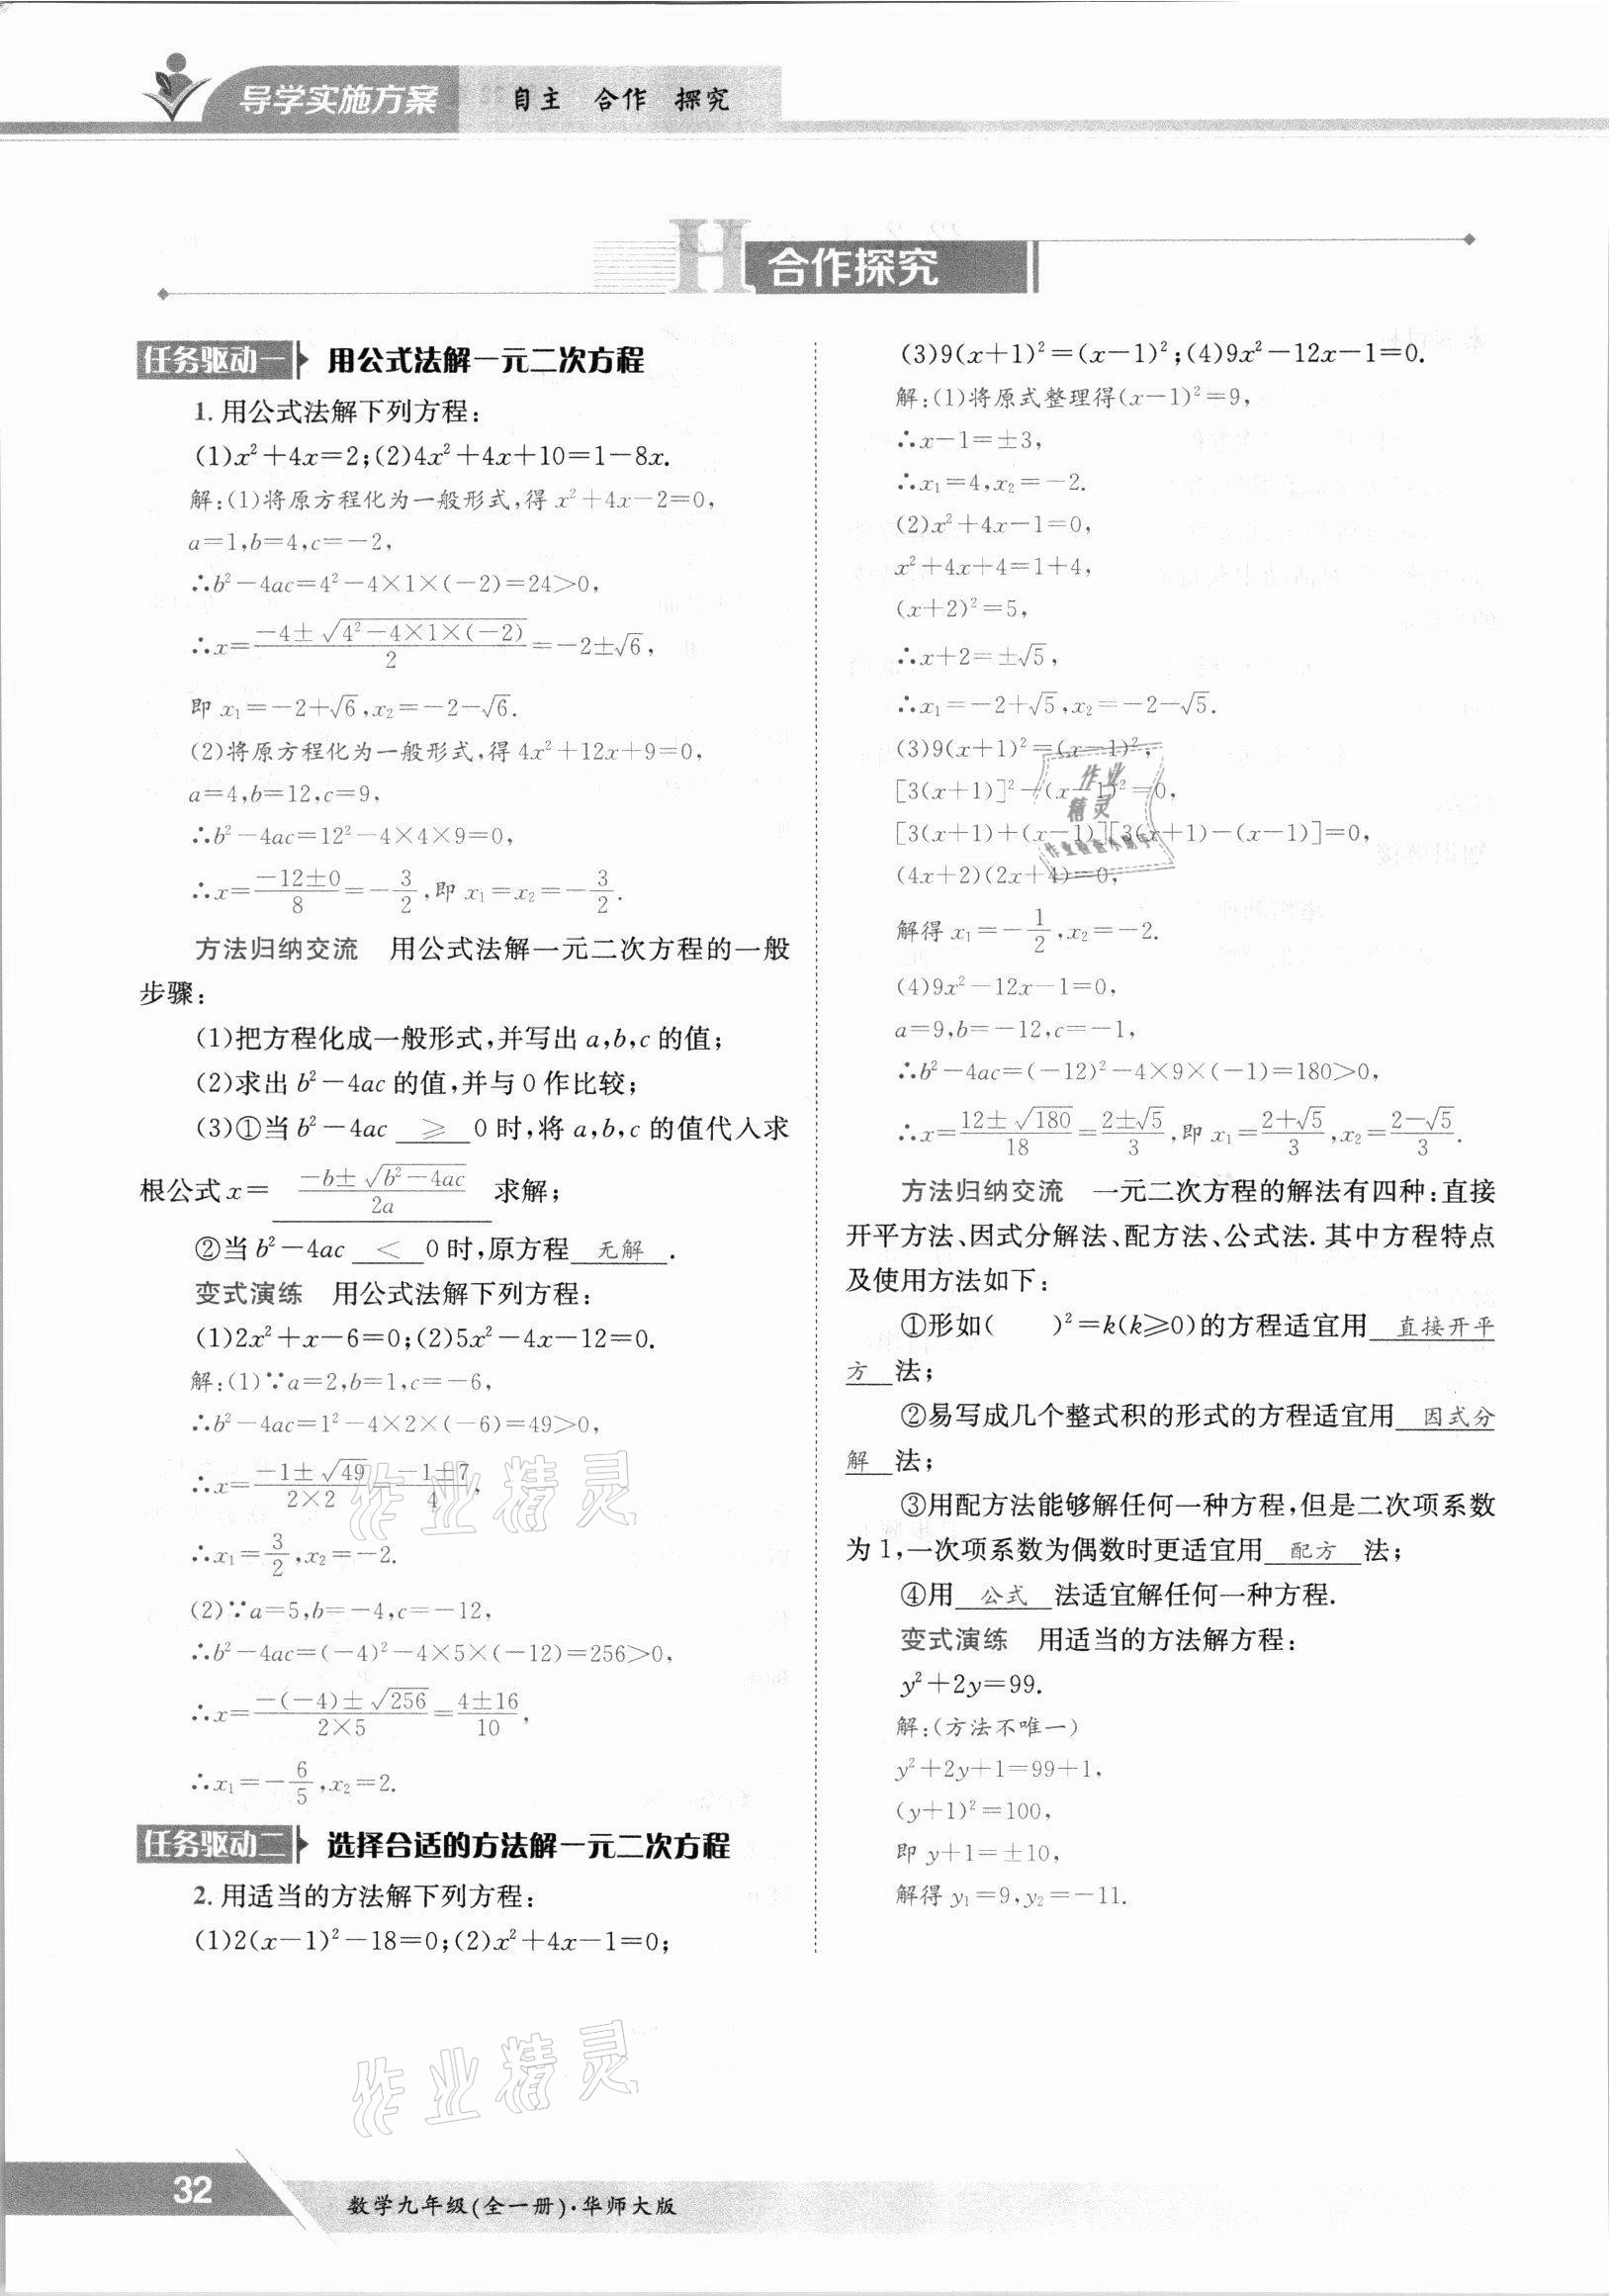 导学实施方案 自主 合作 探究
H 合作探究
任务驱动一 用公式法解一元二次方程
1. 用公式法解下列方程:
(1)x²+4x=2;(2)4x²+4x+10=1-8x.
解:(1)将原方程化为一般形式,得 x²+4x-2=0,
a=1,b=4,c=-2,
∴b²-4ac=4²-4×1×(-2)=24>0,
∴x=\frac{-4±\sqrt{4²-4×1×(-2)}}{2}=-2±√6,
即 x₁=-2+√6,x₂=-2-√6.
(2)将原方程化为一般形式,得 4x²+12x+9=0,
a=4,b=12,c=9,
∴b²-4ac=12²-4×4×9=0,
∴x=\frac{-12±0}{8}=-\frac{3}{2},即 x₁=x₂=-\frac{3}{2}.
方法归纳交流 用公式法解一元二次方程的一般
步骤:
(1)把方程化成一般形式,并写出 a,b,c 的值;
(2)求出 b²-4ac 的值,并与 0 作比较;
(3)①当 b²-4ac ≥ 0 时,将 a,b,c 的值代入求
根公式 x= \frac{-b±\sqrt{b²-4ac}}{2a} 求解;
②当 b²-4ac < 0 时,原方程 无解 .
变式演练 用公式法解下列方程:
(1)2x²+x-6=0;(2)5x²-4x-12=0.
解:(1)∵a=2,b=1,c=-6,
∴b²-4ac=1²-4×2×(-6)=49>0,
∴x=\frac{-1±\sqrt{49}}{2×2}=\frac{-1±7}{4},
∴x₁=\frac{3}{2},x₂=-2.
(2)∵a=5,b=-4,c=-12,
∴b²-4ac=(-4)²-4×5×(-12)=256>0,
∴x=\frac{-(-4)±\sqrt{256}}{2×5}=\frac{4±16}{10},
∴x₁=-\frac{6}{5},x₂=2.
任务驱动二 选择合适的方法解一元二次方程
2. 用适当的方法解下列方程:
(1)2(x-1)²-18=0;(2)x²+4x-1=0;
(3)9(x+1)²=(x-1)²;(4)9x²-12x-1=0.
解:(1)将原式整理得(x-1)²=9,
∴x-1=±3,
∴x₁=4,x₂=-2.
(2)x²+4x-1=0,
x²+4x+4=1+4,
(x+2)²=5,
∴x+2=±√5,
∴x₁=-2+√5,x₂=-2-√5.
(3)9(x+1)²=(x-1)²,
[3(x+1)]²-(x-1)²=0,
[3(x+1)+(x-1)][3(x+1)-(x-1)]=0,
(4x+2)(2x+4)=0,
解得 x₁=-\frac{1}{2},x₂=-2.
(4)9x²-12x-1=0,
a=9,b=-12,c=-1,
∴b²-4ac=(-12)²-4×9×(-1)=180>0,
∴x=\frac{12±\sqrt{180}}{18}=\frac{2±√5}{3},即 x₁=\frac{2+√5}{3},x₂=\frac{2-√5}{3}.
方法归纳交流 一元二次方程的解法有四种:直接
开平方法、因式分解法、配方法、公式法. 其中方程特点
及使用方法如下:
①形如( )²=k(k≥0)的方程适宜用 直接开平
方 法;
②易写成几个整式积的形式的方程适宜用 因式分
解 法;
③用配方法能够解任何一种方程,但是二次项系数
为 1,一次项系数为偶数时更适宜用 配方 法;
④用 公式 法适宜解任何一种方程.
变式演练 用适当的方法解方程:
y²+2y=99.
解:(方法不唯一)
y²+2y+1=99+1,
(y+1)²=100,
即 y+1=±10,
解得 y₁=9,y₂=-11.
作业
精灵
作业检查小助手
作业精灵
作业精灵
32
数学九年级(全一册)·华师大版